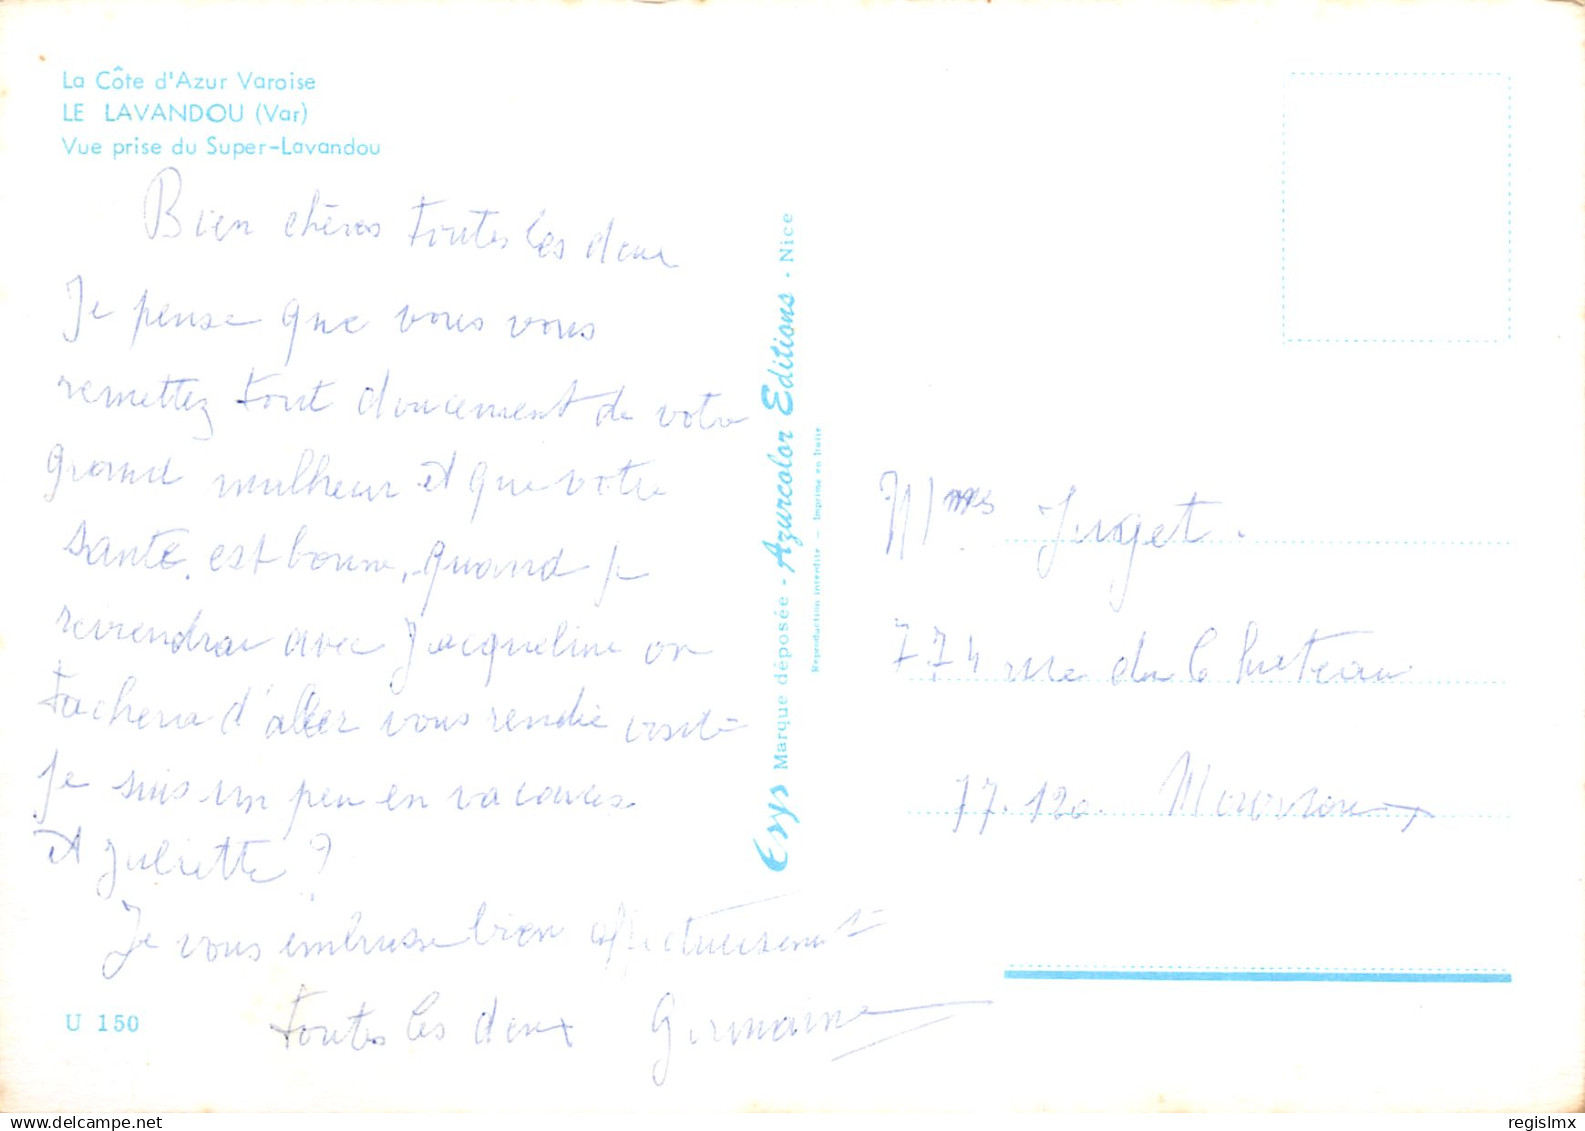 La Côte d'Azur Varoise
LE LAVANDOU (Var)
Vue prise du Super-Lavandou
Bien chères toutes les deux
Je pense que vous vous
remettez tout doucement de votre
grand malheur et que votre
santé est bonne, quand je
reviendrai avec Jacqueline on
tachera d'aller vous rendre visite
Je suis un peu en vacances
et Juliette ?
Je vous embrasse bien affectueusement
toutes les deux Germaine
U 150
Erys Marque déposée - Azurcolor Editions - Nice
Reproduction interdite - Imprimé en Italie
Mmes Juget.
774 rue du Château
77.120.
regislmx